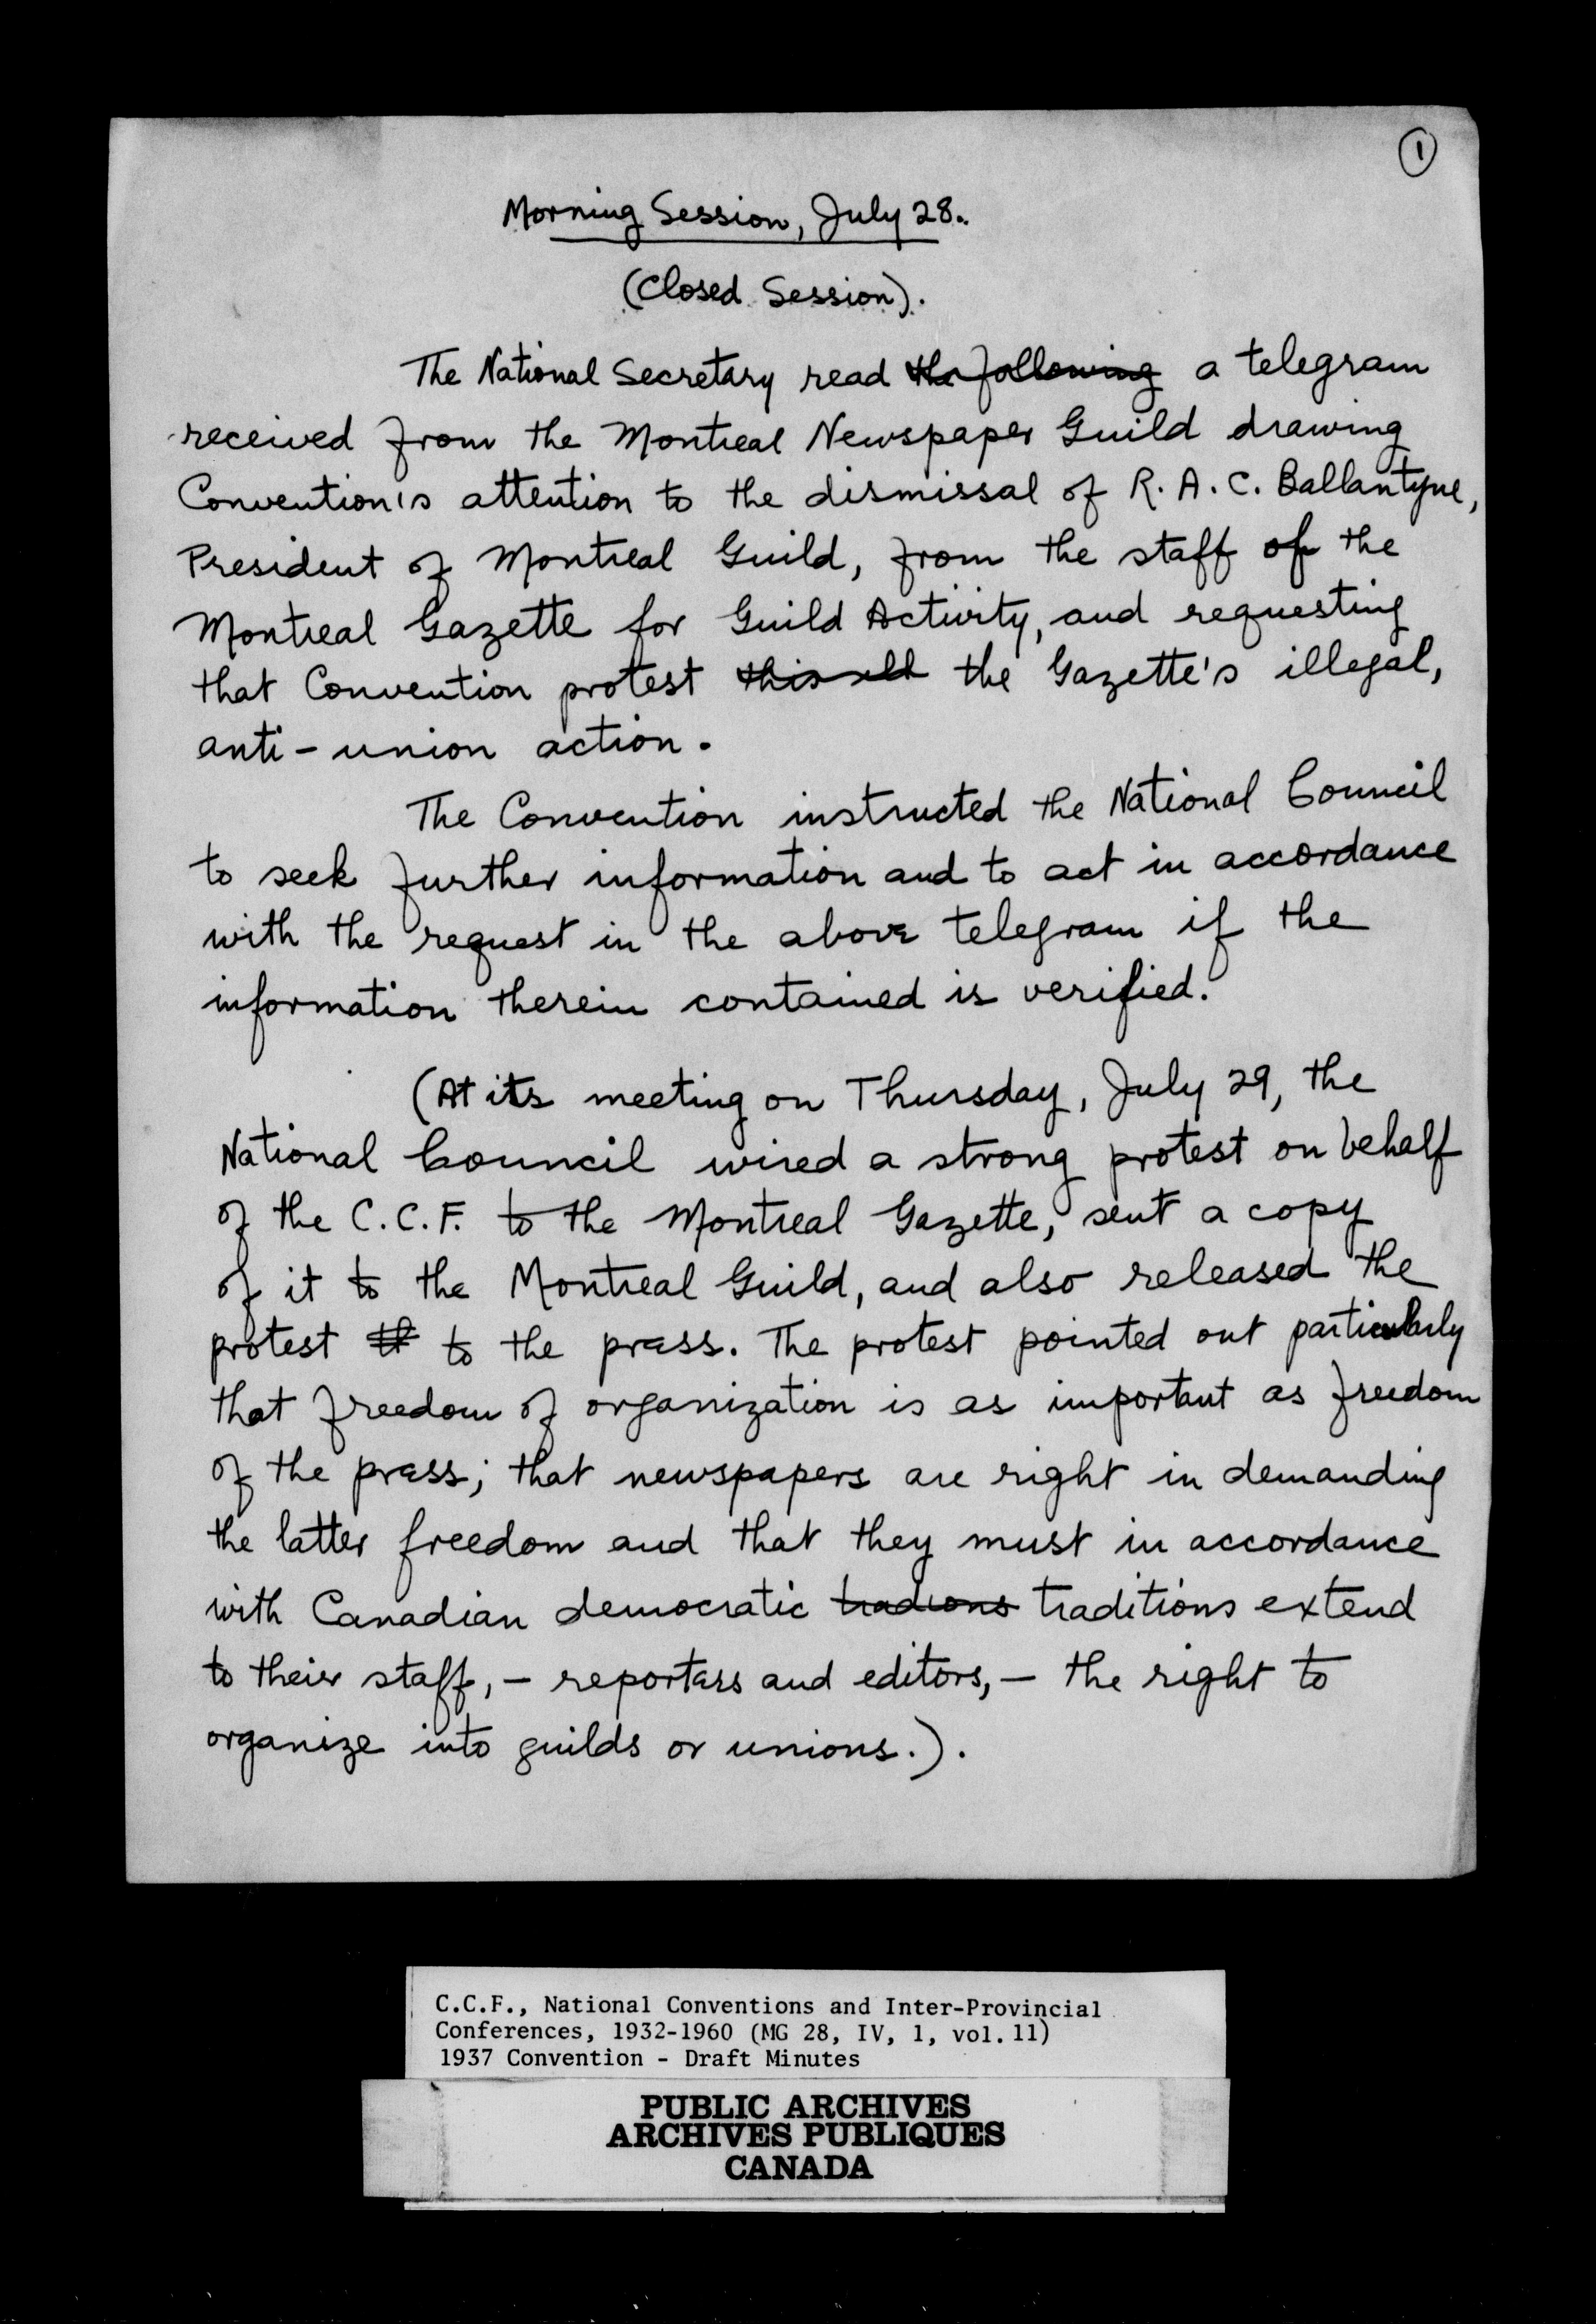 1
Morning Session, July 28.
(Closed Session).
The National Secretary read the following a telegram
received from the Montreal Newspaper Guild drawing
Convention's attention to the dismissal of R. A. C. Ballantyne,
President of Montreal Guild, from the staff of the
Montreal Gazette for Guild Activity, and requesting
that Convention protest this the Gazette's illegal,
anti-union action.
The Convention instructed the National Council
to seek further information and to act in accordance
with the request in the above telegram if the
information therein contained is verified.
(At its meeting on Thursday, July 29, the
National Council wired a strong protest on behalf
of the C.C.F. to the Montreal Gazette, sent a copy
of it to the Montreal Guild, and also released the
protest to the press. The protest pointed out particularly
that freedom of organization is as important as freedom
of the press; that newspapers are right in demanding
the latter freedom and that they must in accordance
with Canadian democratic tradions traditions extend
to their staff, - reporters and editors, - the right to
organize into guilds or unions.).
C.C.F., National Conventions and Inter-Provincial
Conferences, 1932-1960 (MG 28, IV, 1, vol. 11)
1937 Convention - Draft Minutes
PUBLIC ARCHIVES
ARCHIVES PUBLIQUES
CANADA